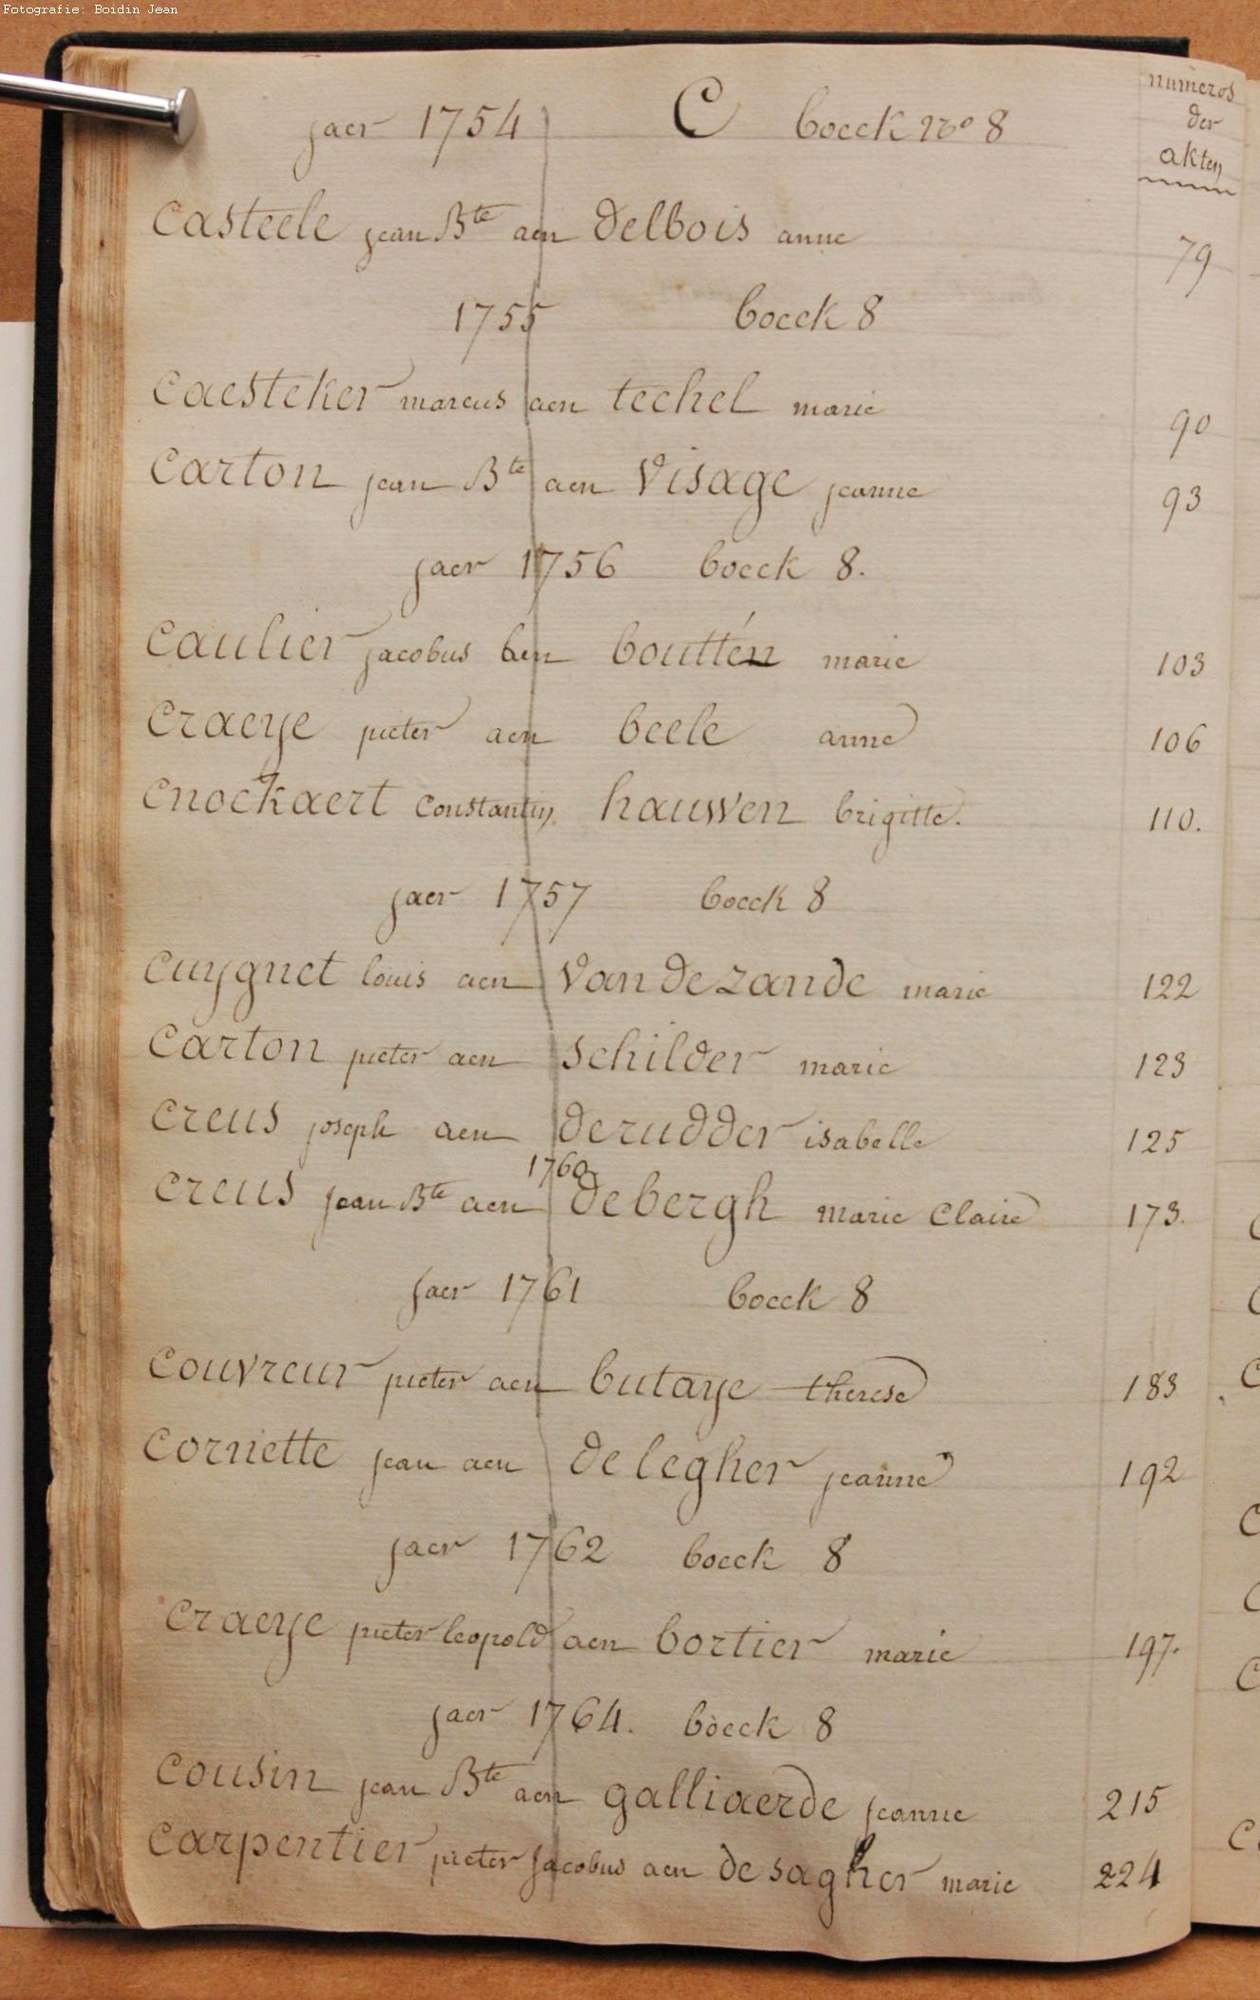 Fotografie: Boidin Jean
numeros
der
akten
jaer 1754 C boeck No 8
Casteele jean Bte aen delbois anne 79
1755 boeck 8
Caesteker marcus aen techel marie 90
Carton jean Bte aen Visage jeanne 93
jaer 1756 boeck 8.
Caulier jacobus aen boutten marie 103
Craeye pieter aen beele anne 106
Cnockaert Constantin hauwen brigitte. 110.
jaer 1757 boeck 8
Cuygnet louis aen Van de zande marie 122
Carton pieter aen schilder marie 123
Creus joseph aen derudder isabelle 125
1760
Creus jean Bte aen debergh marie Claire 173.
jaer 1761 boeck 8
Couvreur pieter aen butaye therese 183
Cornette jean aen de legher jeanne 192
jaer 1762 boeck 8
Craeye pieter leopold aen bortier marie 197.
jaer 1764. boeck 8
Cousin jean Bte aen galliaerde jeanne 215
Carpentier pieter jacobus aen de sagher marie 224